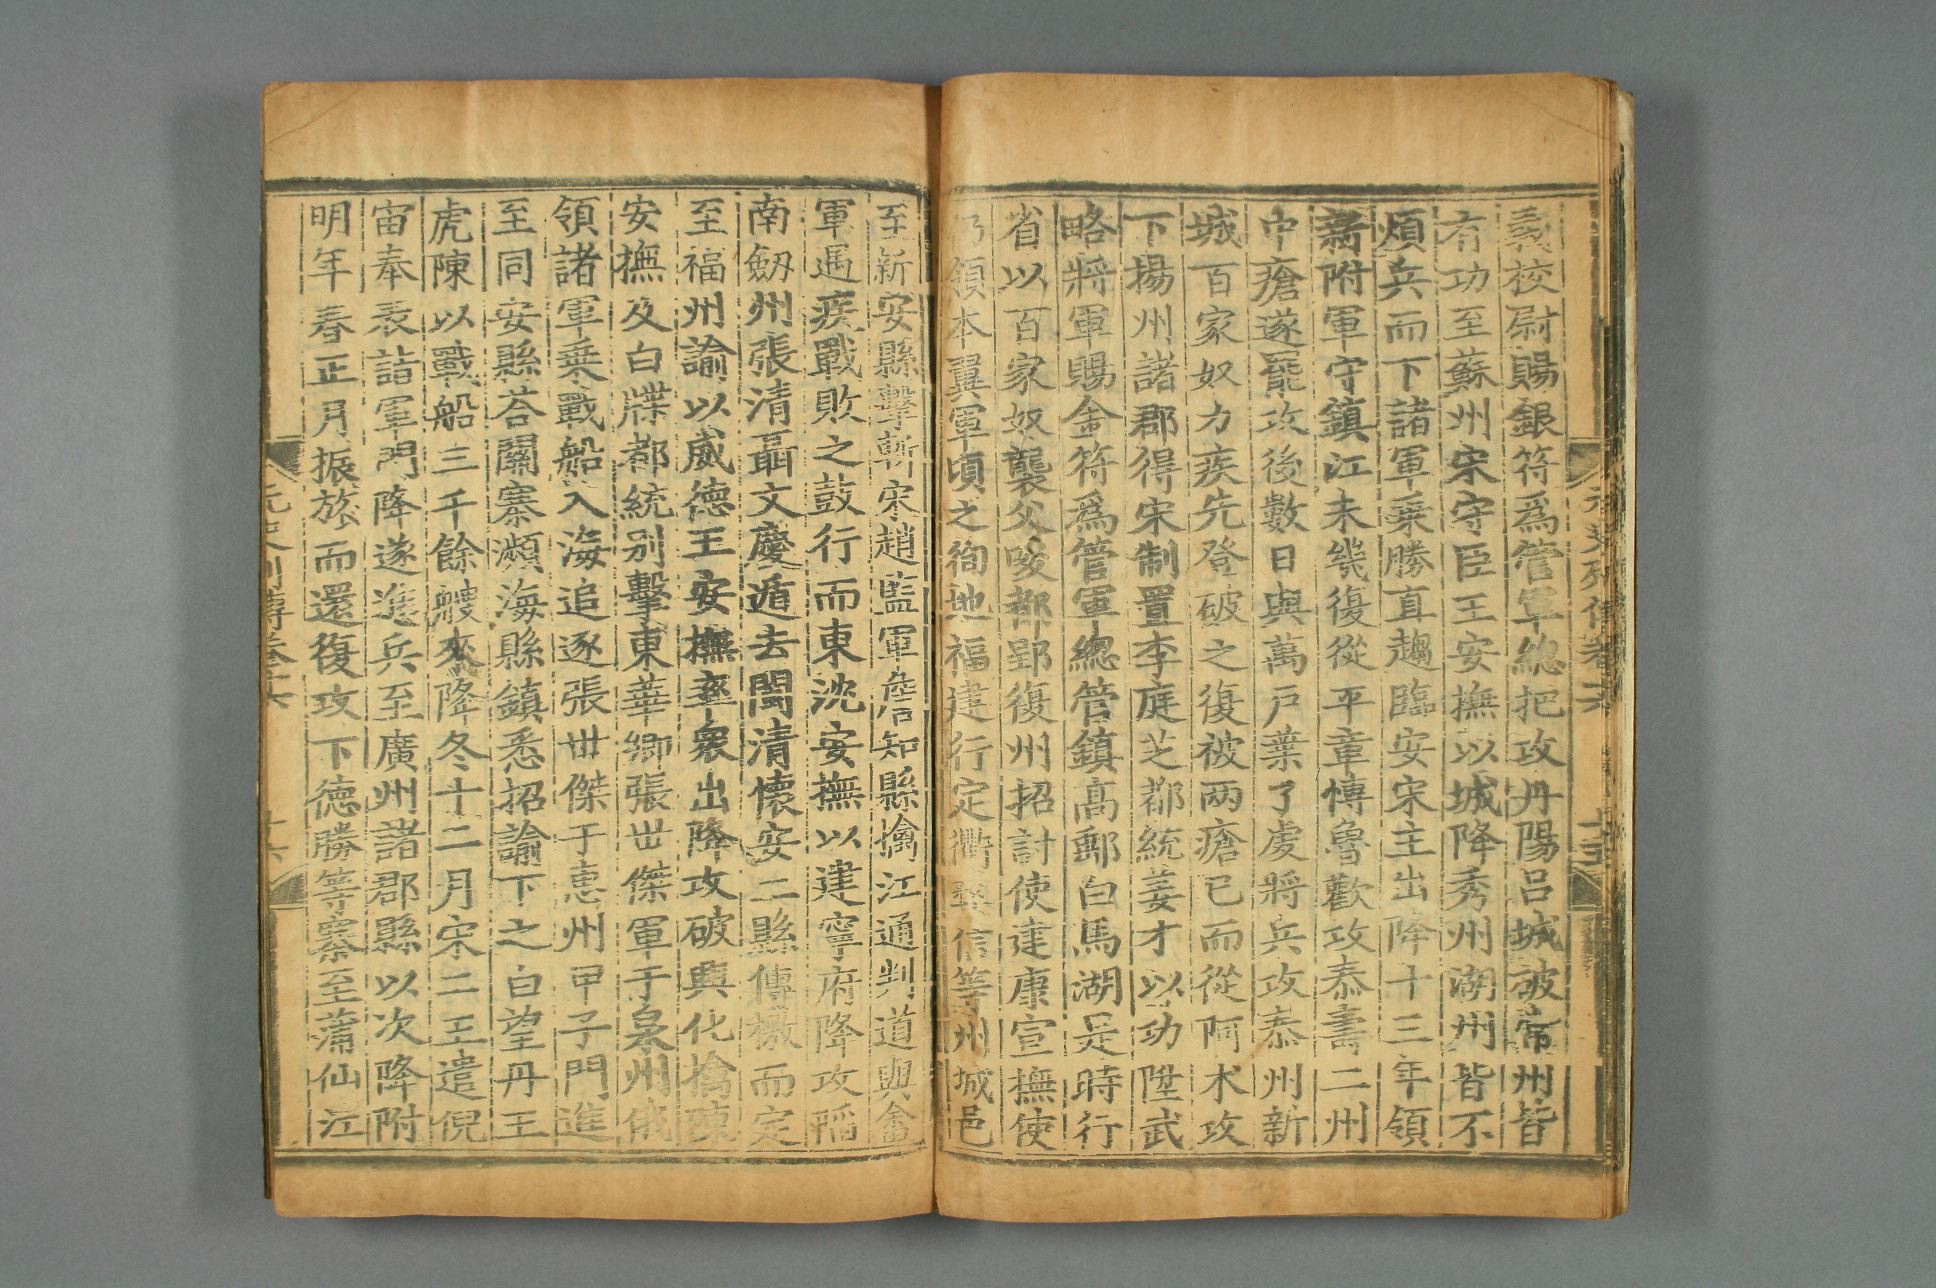 義校尉賜銀符爲管軍總把攻丹陽呂城破常州皆
有功至蘇州宋守臣王安撫以城降秀州湖州皆不
煩兵而下諸軍乗勝直趨臨安宋主出降十三年領
新附軍守鎮江未幾復從平章愽魯歡攻泰壽二州
中瘡遂罷攻後數日與萬戸葉了虔將兵攻泰州新
城百家奴力疾先登破之復被两瘡已而從阿术攻
下揚州諸郡得宋制置李庭芝都統姜才以功陞武
略將軍賜金符爲管軍總管鎮高郵白馬湖是時行
省以百家奴襲父唆都郢復州招討使建康宣撫使
仍領本翼軍頃之徇地福建行定衢婺信等州城邑
至新安縣擊斬宋趙監軍詹知縣擒江通判道與畬
軍遇疾戰敗之鼓行而東沈安撫以建寧府降攻稻
南劔州張清聶文慶遁去閩清懐安二縣傳檄而定
至福州諭以威德王安撫率衆出降攻破興化擒陳
安撫及白牒都統别擊東華卿張世傑軍于泉州俄
領諸軍乗戰船入海追逐張世傑于惠州甲子門進
至同安縣荅關寨瀕海縣鎮悉招諭下之白望丹王
虎陳以戰船三千餘艘來降冬十二月宋二王遣倪
宙奉表詣軍門降遂進兵至廣州諸郡縣以次降附
明年春正月振旅而還復攻下德勝等寨至蒲仙江
元史列傳卷十六
十六